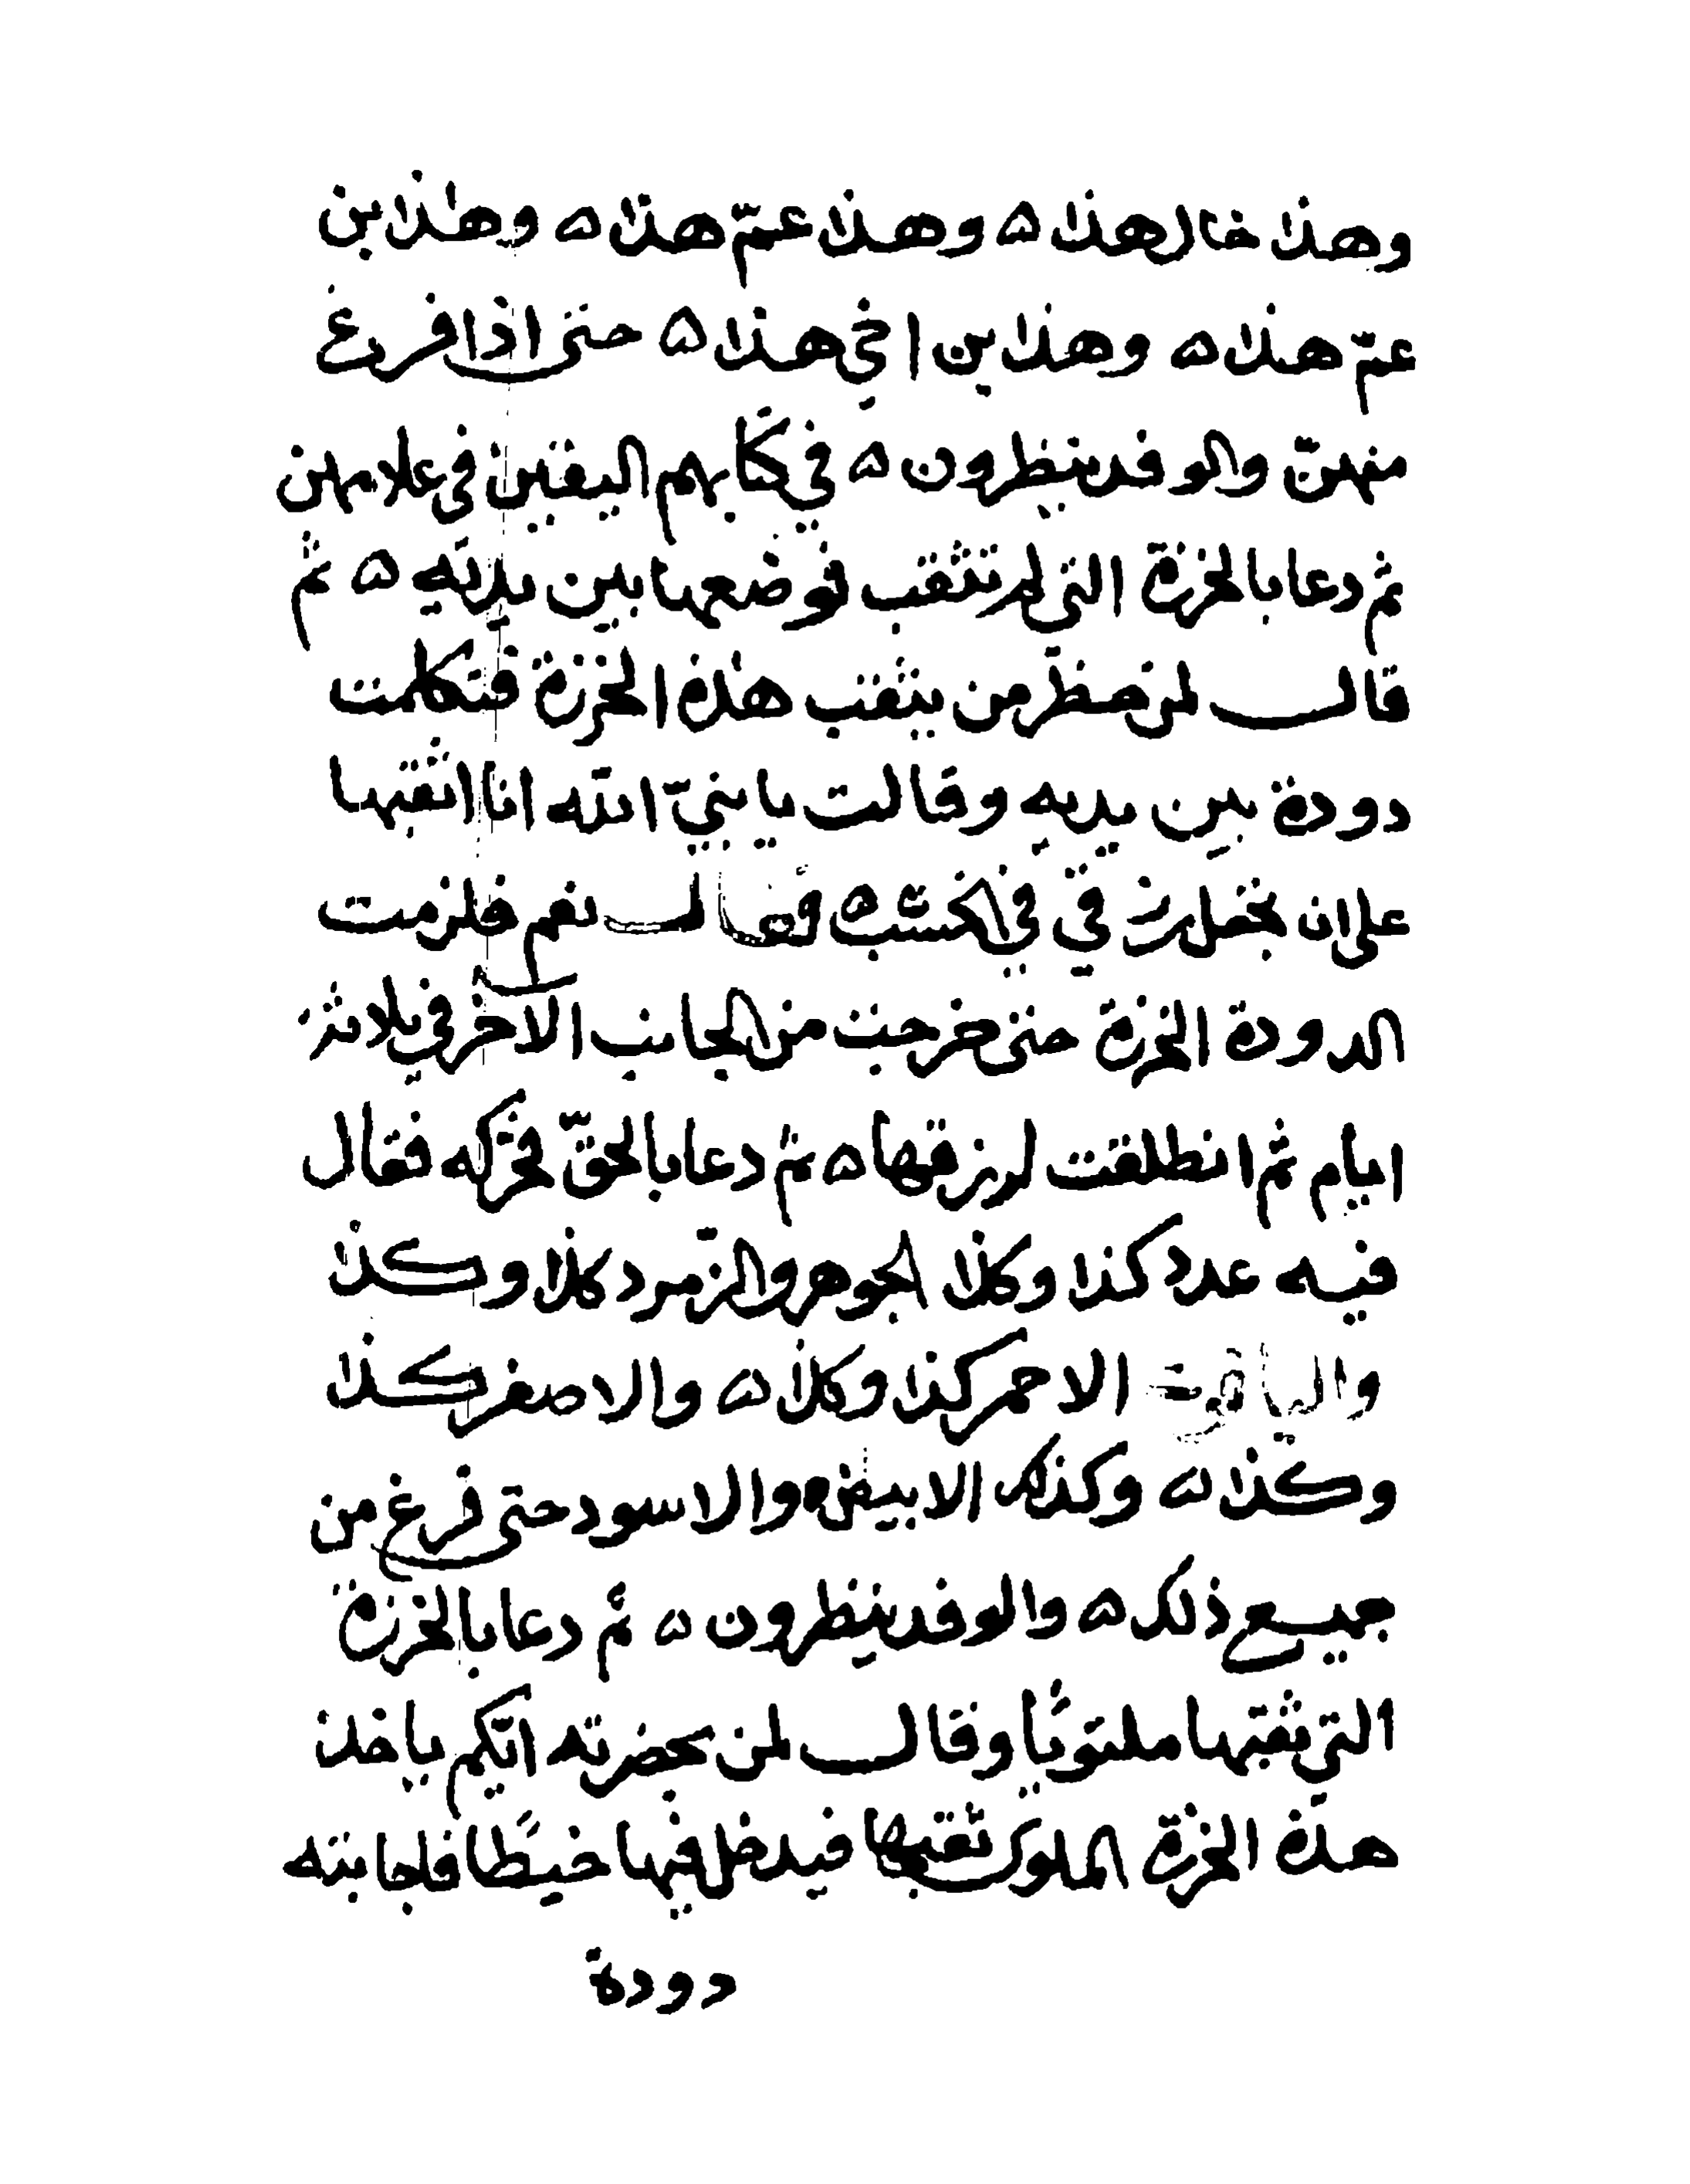 وهذا خال هذا ه وهذا عمّ هذا ه وهذا بن
عمّ هذا ه وهذا بن اخي هذا ه حتى اذا فرغ
منهنّ والوفد ينظرون ه في كتابهم اليقين في علامهن
ثم دعا بالخرزة التي لم تثقب فوضعها بين يديه ه ثم
قال لمن حضر من يثقب هذه الخرزة فتكلمت
دودة بين يديه وقالت يا نبيّ الله انا اثقبها
على ان تجعل رزقي في الخشب ه فقال نعم فلزمت
الدودة الخرزة حتى خرجت من الجانب الاخر في ثلاثة
ايام ثم انطلقت لرزقها ه ثم دعا بالحقّ فحركه فقال
فيه عدد كذا وكذا الجوهر والزمرد كذا وكذا
والياقوت الاحمر كذا وكذا ه والاصفر كذا
وكذا ه وكذلك الابيض والاسود حتى فرغ من
جميع ذلك ه والوفد ينظرون ه ثم دعا بالخرزة
التي ثقبها ملتويًا وقال لمن بحضرته ايّكم ياخذ
هذه الخرزة الملوك ثقبها فيدخل فيها خيطًا فاجابته
دودة